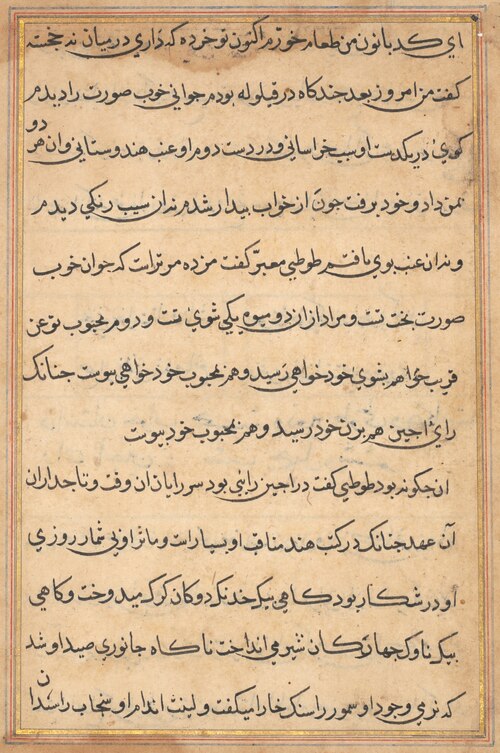 ای کدبانو من طعام خوردم اکنون تو خرده که داری درمیان نه خجسته
کفت من امروز بعد چندکاه در قیلوله بودم جوانی خوب صورت را دیدم
کوی در یکدست او سیب خراسانی و در دست دوم او عنب هندوستانی و آن هر دو
بمن داد و خود برفت چون از خواب بیدار شدم نه از ان سیب رنکی دیدم
و نه ازان عنب بوی یافتم طوطی معبر کفت مژده مر تراست که جوان خوب
صورت بخت تست و مراد ازان دو میوه یکی شوی تست و دوم محبوب تو عن
قریب خواهم بشوی خود خواهی رسید و هم بمحبوب خود خواهی پیوست چنانک
رای اجین هم بزن خود رسید و هم بمحبوب خود پیوست
ان چکونه بود طوطی کفت در اجین رایی بود سر رایان ان وقت و تاجداران
آن عهد چنانک در کتب هند مناقب او بسیار است و مآثر او بی شمار روزی
او در شکار بود کاهی بیک خدنک دوکان کرک میدوخت و کاهی
بیک ناوک چهارکان شیر می انداخت ناکاه جانوری صید او شد
که نرمی وجود او سمور را سنک خارا میکفت و لینت اندام او سنجاب را سندان